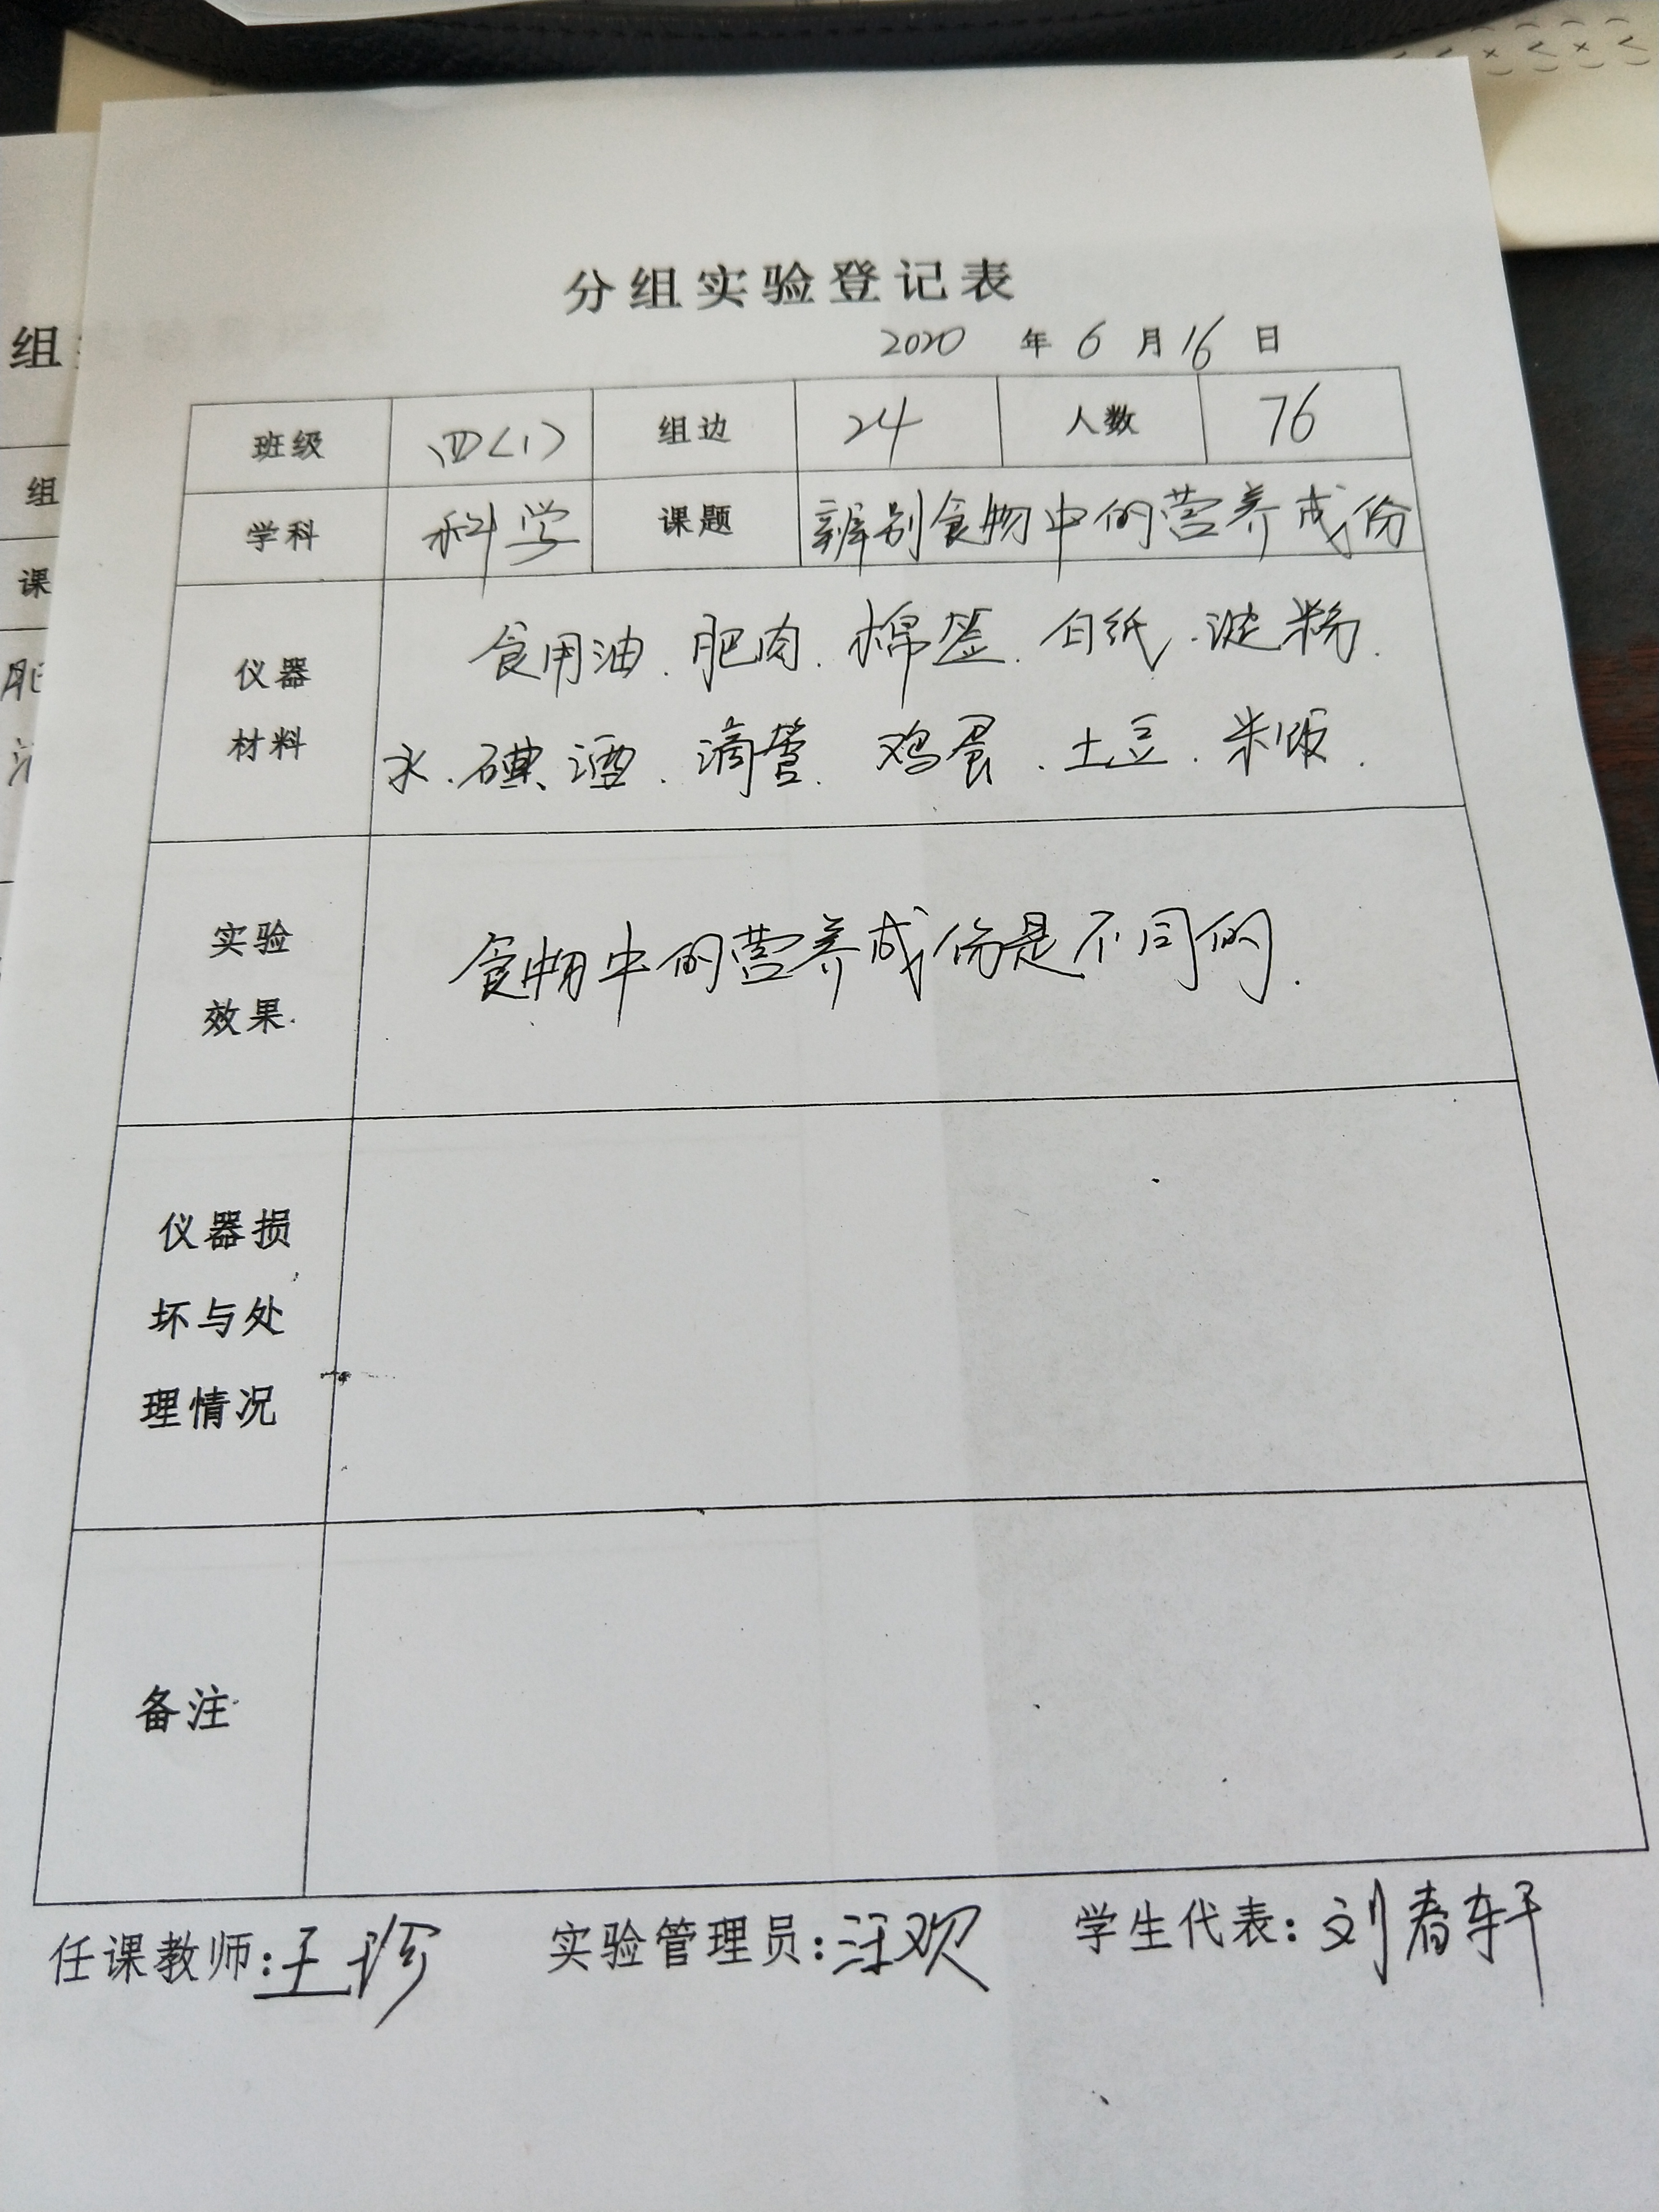 分组实验登记表
2020 年 6 月 16 日
班级 四(1) 组边 24 人数 76
学科 科学 课题 辨别食物中的营养成份
仪器
材料
食用油.肥肉.棉签.白纸.淀粉.
水.碘酒.滴管.鸡蛋.土豆.米饭.
实验
效果
食物中的营养成份是不同的.
仪器损
坏与处
理情况
备注
任课教师:王珍 实验管理员:汪欢 学生代表:刘春轩
组
组
课
肥